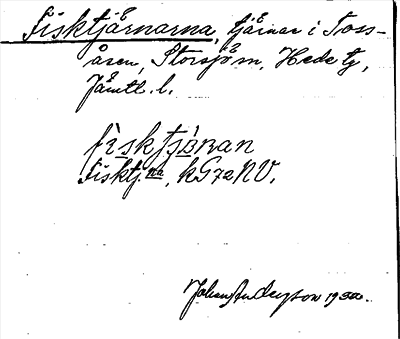 Fisktjårnarna, tjårnar i Toss-
åsen, Storsjö sn, Hede tg,
Jämtl. l.
fìsktjànan
Fisktj.na, kG72NV.
Johan Anderson 1930.